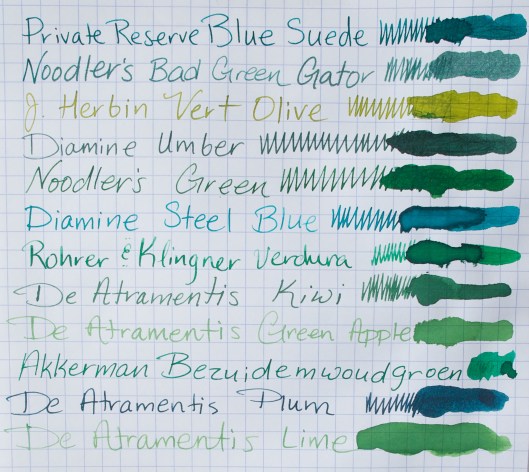 Private Reserve Blue Suede
Noodler's Bad Green Gator
J. Herbin Vert Olive
Diamine Umber
Noodler's Green
Diamine Steel Blue
Rohrer & Klingner Verdura
De Atramentis Kiwi
De Atramentis Green Apple
Akkerman Bezuidemwoudgroen
De Atramentis Plum
De Atramentis Lime